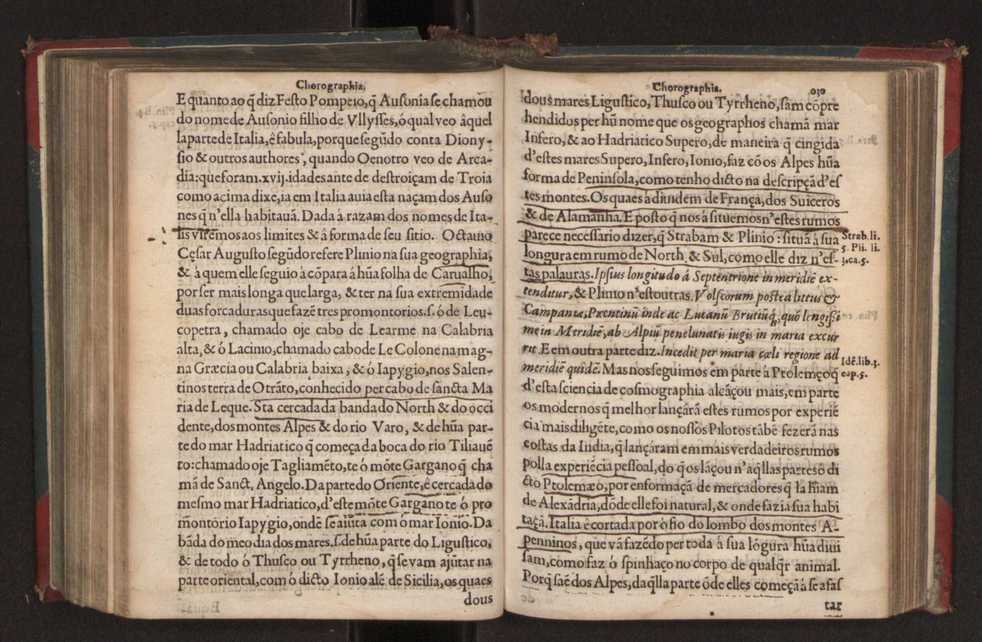 Chorographia,
E quanto ao q̃ diz Festo Pompeio, q̃ Ausonia se chamou
do nome de Ausonio filho de Vllysses, ó qual veo âquel
la parte de Italia, ê fabula, porque segũdo conta Diony-
sio & outros authores, quando Oenotro veo de Arca-
dia: que foram .xvij. idades ante de destroiçam de Troia
como acima dixe, ia em Italia auia esta naçam dos Auso
nes q̃ n'ella habitauã. Dada â razam dos nomes de Ita-
lia viremos aos limites & â forma de seu sitio. Octauio
Cęsar Augusto segũdo refere Plinio na sua geographia,
& â quem elle seguio â cõpara â hũa folha de Carualho,
por ser mais longa que larga, & ter na sua extremidade
duas forcaduras que fazẽ tres promontorios. s. ó de Leu-
copetra, chamado oje cabo de Learme na Calabria
alta, & ó Lacinio, chamado cabo de Le Colone na mag-
na Græcia ou Calabria baixa, & ó Iapygio, nos Salen-
tinos terra de Otrãto, conhecido per cabo de sancta Ma
ria de Leque. Sta cercada da banda do North & do occi
dente, dos montes Alpes & do rio Varo, & de hũa par-
te do mar Hadriatico q̃ começa da boca do rio Tiliauẽ
to: chamado oje Tagliamẽto, te ó mõte Gargano q̃ cha
mã de Sanct. Angelo. Da parte do Oriente, ê cercada do
mesmo mar Hadriatico, d'este mõte Gargano te ó pro
montorio Iapygio, onde se aiũta com ó mar Ionio. Da
bãda do meo dia dos mares. s. de hũa parte do Ligustico,
& de todo ó Thusco ou Tyrrheno, q̃ se vam ajũtar na
parte oriental, com ó dicto Ionio alẽ de Sicilia, os quaes
dous
Chorographia.
dous mares Ligustico, Thusco ou Tyrrheno, sam cõpre
hendidos per hũ nome que os geographos chamã mar
Infero, & ao Hadriatico Supero, de maneira q̃ cingida
d'estes mares Supero, Infero, Ionio, faz cõ os Alpes hũa
forma de Peninsola, como tenho dicto na descripçã d'es
tes montes. Os quaes â diuidem de França, dos Suiceros
& de Alamanha. E posto q̃ nos â situemos n'estes rumos
parece necessario dizer, q̃ Strabam & Plinio: situã â sua
longura em rumo de North & Sul, como elle diz n'es-
tas palauras. Ipsius longitudo á Septentrione in meridiẽ ex-
tenditur, & Plinio n'estoutras. Volscorum postea litius &
Campaniæ, Picentinũ inde ac Lucanũ Brutiũq;, quò longissi
me in Meridiẽ, ab Alpiũ penelunatis iugis in maria excur
rit. E em outra parte diz. Incedit per maria cæli regione ad
meridiẽ quidẽ. Mas nos seguimos em parte â Ptolemęo q̃
d'esta sciencia de cosmographia alcãçou mais, em parte
os modernos q̃ melhor lançarã estes rumos por experiẽ
cia mais diligẽte, como os nossos Pilotos tãbẽ fezerã nas
costas da India, q̃ lançaram em mais verdadeiros rumos
polla experiẽcia pessoal, do q̃ os lãçou n'aq̃llas partes ó di
cto Ptolemęo, por enformaçã de mercadores q̃ la hiam
de Alexãdria, dõde elle foi natural, & onde fazia sua habi
taçã. Italia ê cortada por ó fio do lombo dos montes A-
penninos, que vã fazẽdo per toda â sua lõgura hũa diui
sam, como faz ó spinhaço no corpo de qualq̃r animal.
Porq̃ sãe dos Alpes, daq̃lla parte õde elles começã â se afas
tar
Strab. li.
5. Pli. li.
3. ca. 5.
Idẽ. lib. 3.
cap. 5.